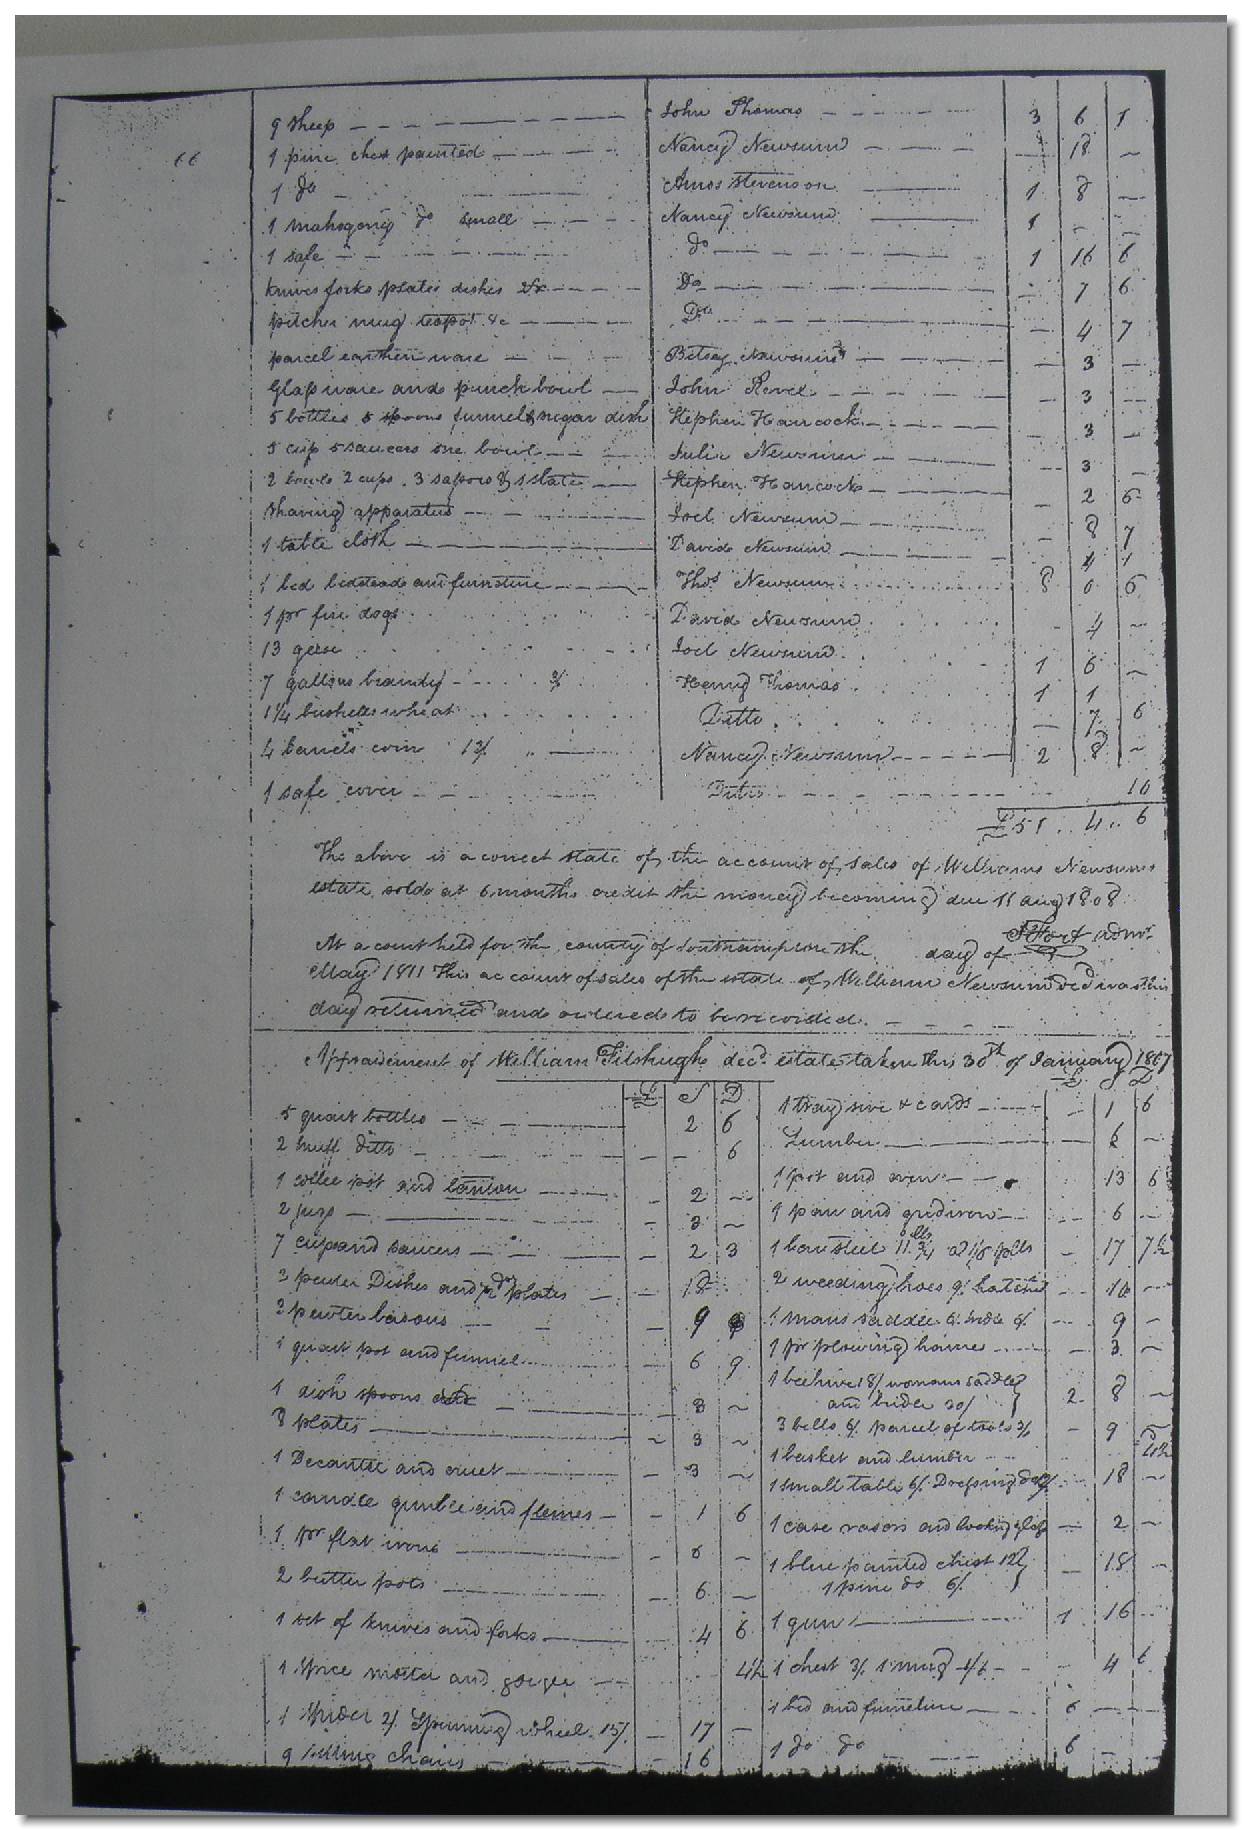 66
9 Sheep John Thomas 3 6 1
1 pine chest painted Nancy Newsum 18
1 do Amos Stevenson 1 8
1 mahogony do small Nancy Newsum 1
1 safe do 1 16 6
knives forks plates dishes &c Do 7 6
pitcher mug teapot &c Do 4 7
parcel earthen ware Betsey Newsum 3
Glass ware and punch bowl John Revel 3
5 bottles 5 spoons funnel & sugar dish Stephen Hancock 3
5 cup 5 saucers one bowl Julia Newsum 3
2 bowls 2 cups 3 & 1 slate Stephen Hancock 2 6
Shaving apparatus Joel Newsum 8 7
1 table cloth David Newsum 4 1
1 bed bedstead and furniture Thos Newsum 8 0 6
1 pr fire dogs David Newsum 4
13 geese Joel Newsum 1 6
7 gallons brandy 3/ Henry Thomas 1 1
1 1/4 bushells wheat Ditto 7 6
4 barrels corn 12/ Nancy Newsum 2 8
1 safe cover Ditto 10
£51 .. 4 .. 6
The above is a correct state of the account of sales of Williams Newsums
estate sold at 6 months credit the money becoming due 11 aug 1808
Fort admr
At a court held for the county of Southampton the day of
May 1811 This account of sales of the estate of William Newsum decd was this
day returned and ordered to be recorded.
Appraisement of William Fitzhugh decd. estate taken this 30th of January 1807
£ S D
5 quart bottles 2 6
2 snuff ditto 6
1 coffee pot and 2
2 jugs 3
7 cups and saucers 2 3
3 pewter Dishes and 1/2 do plates 18
3 pewter basons 9
1 quart pot and funnel 6 9
1 dish spoons 3
8 plates 3
1 Decanter and cruet 3
1 candle and fleines 1 6
1 pr flat irons 6
2 butter pots 6
1 set of knives and forks 4 6
1 Spice morter and 4 1/2
1 Spider 2/ Spinning wheel 15/ 17
9 sitting chairs 16
£ S D
1 tray sive & cards 1 6
Lumber 6
1 pot and oven 13 6
1 pan and gridiron 6
1 bar steel 11 3/4 lbs 17 7 1/2
2 weeding hoes 9/ hatchet 10
1 mans saddle 6/ bridle 9
1 pr plowing haines 3
1 beehive 18/ womans saddle
and bridle 30/ 2 8
3 bells 6/ parcel of tools 3/ 9
1 basket and lumber 4 1/2
1 small table 6/ Dressing do 18
1 case rasors and looking glass 2
1 blue painted chest 12/
1 pine do 6/ 18
1 gun 1 16
1 chest 3/ 1 mug 1/6 4 6
1 bed and furneture 6
1 do do 6